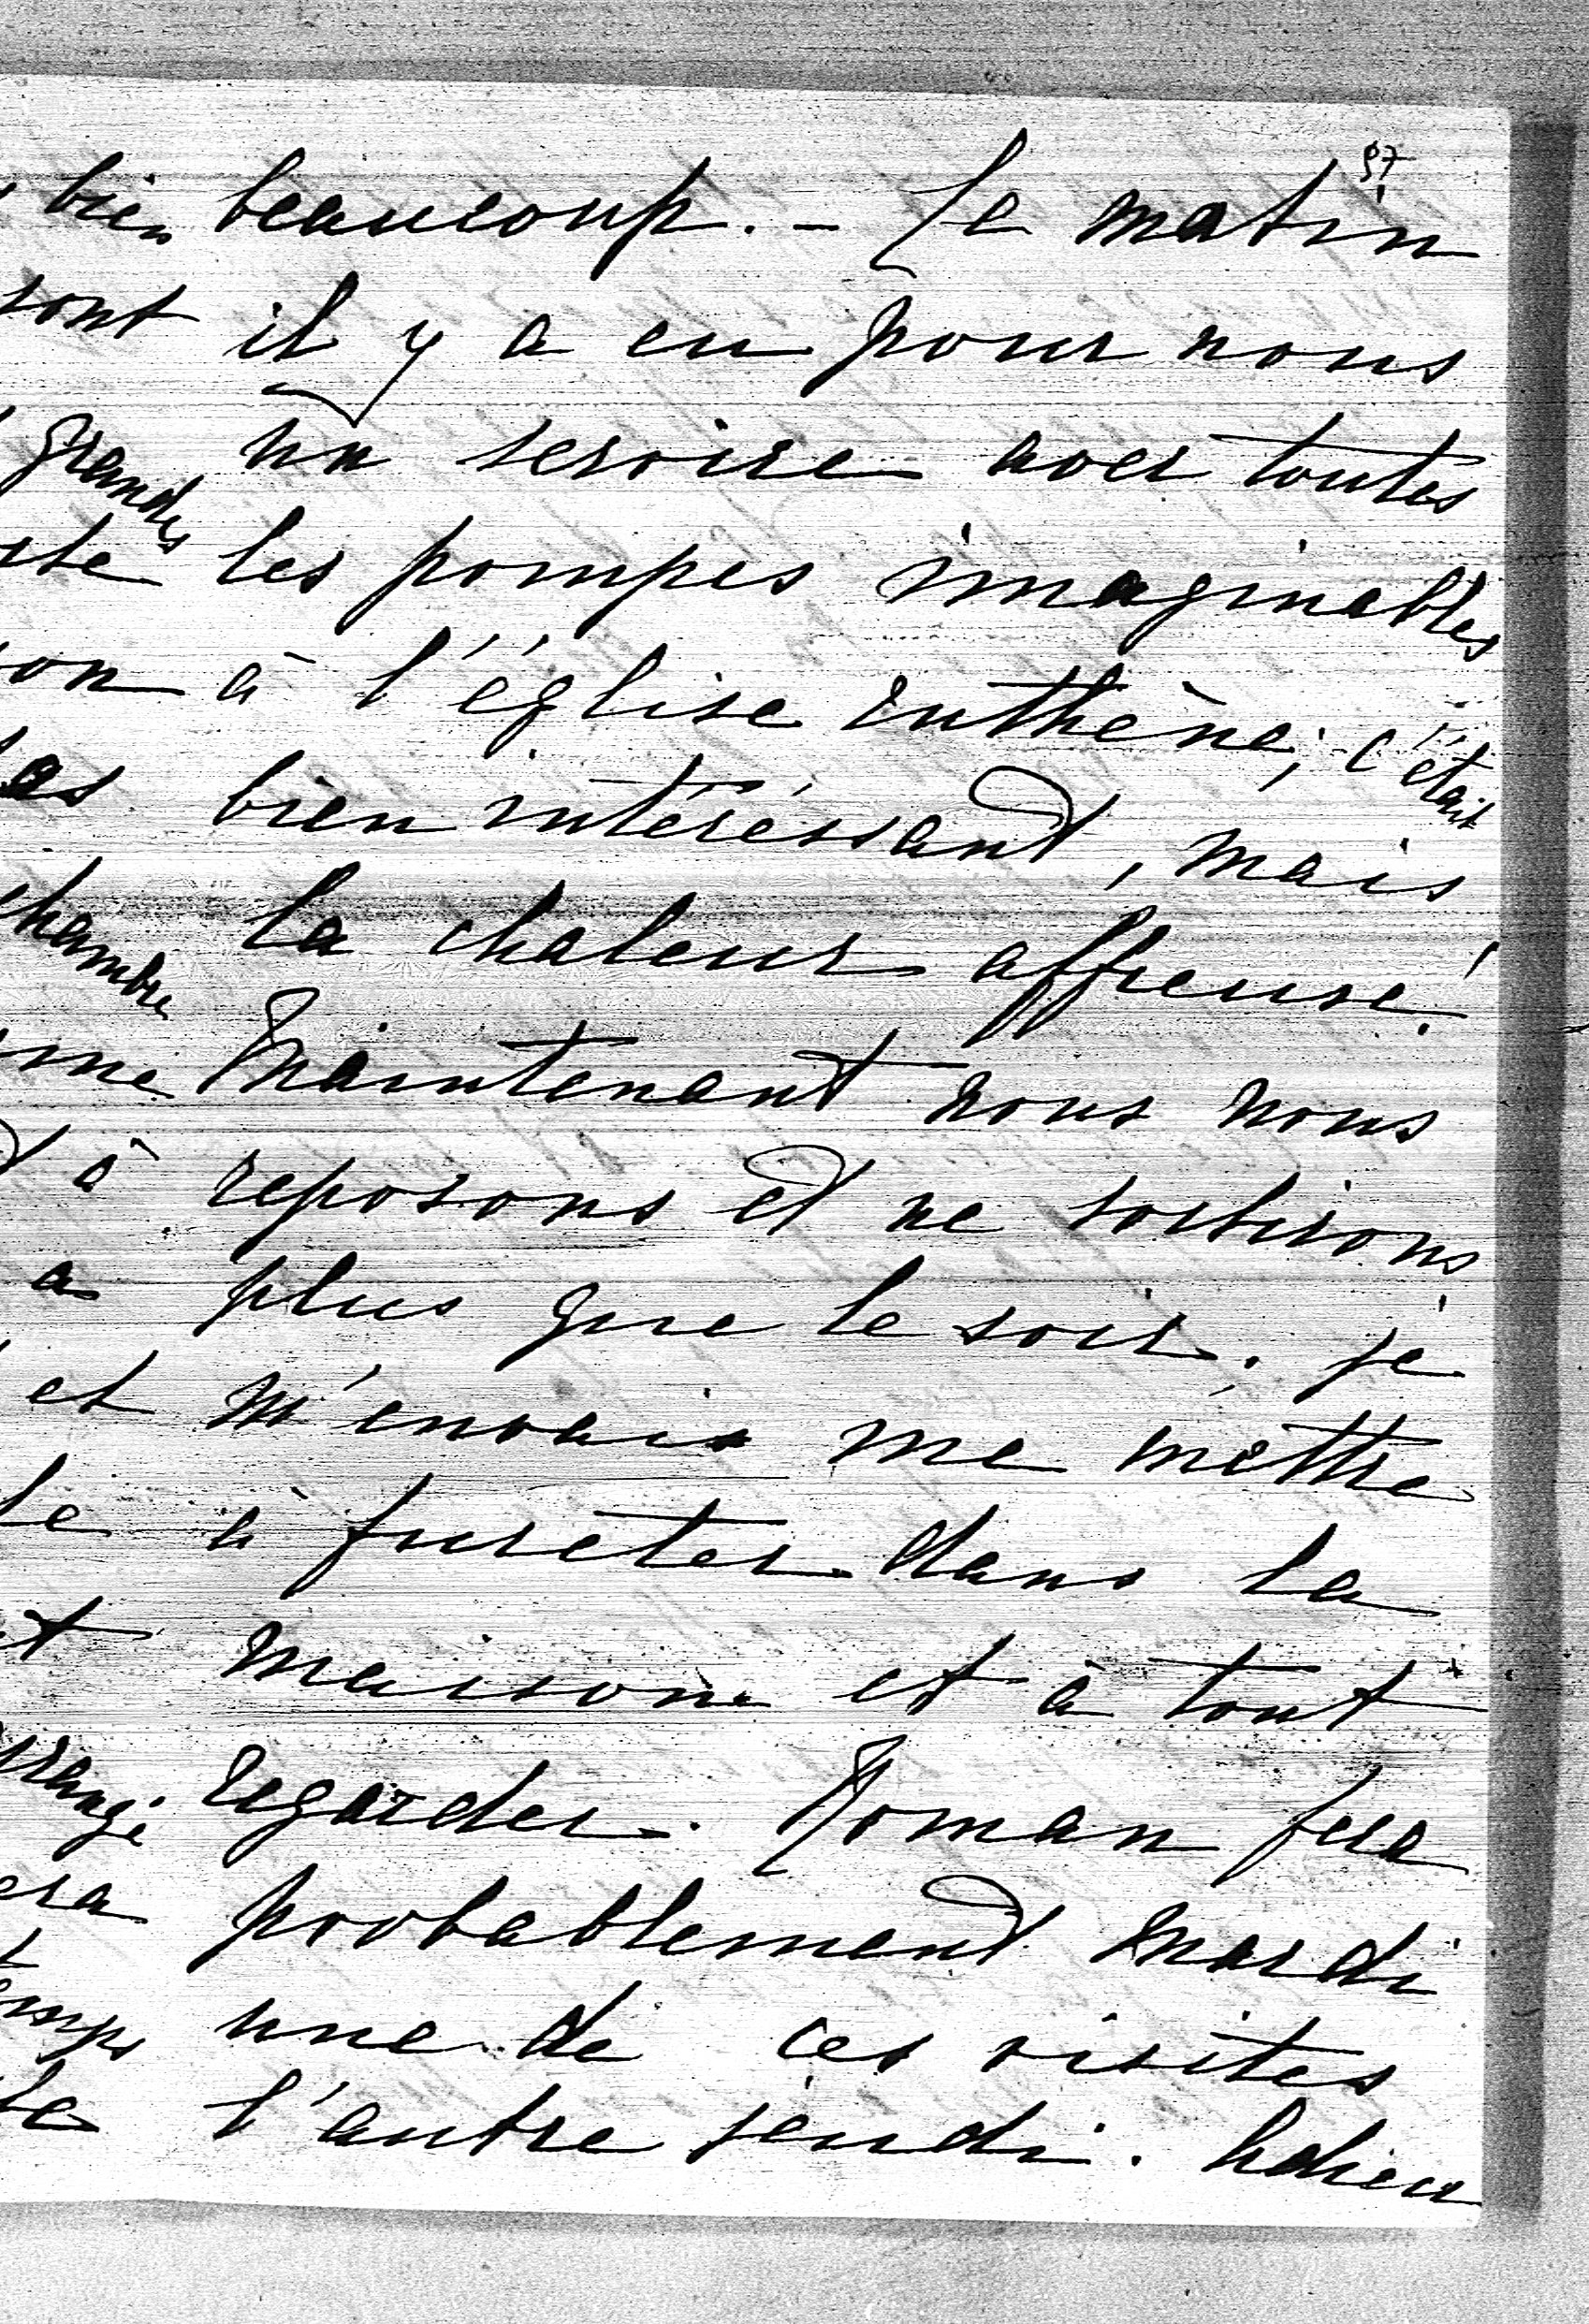 97
bien beaucoup. – Le matin
sont il y a eu pour nous
grandes un service avec toutes
les pompes imaginables
on à l'église ruthène; c'était
bien intéressant, mais
chambre la chaleur affreuse!
me Maintenant nous nous
à reposons et ne sortirons
a plus que le soir. je
et m'envais me mettre
le à fureter dans la
maison et à tout
regarder. Roman fera
era probablement mardi
une de ces visites
l'autre jeudi. Adieu